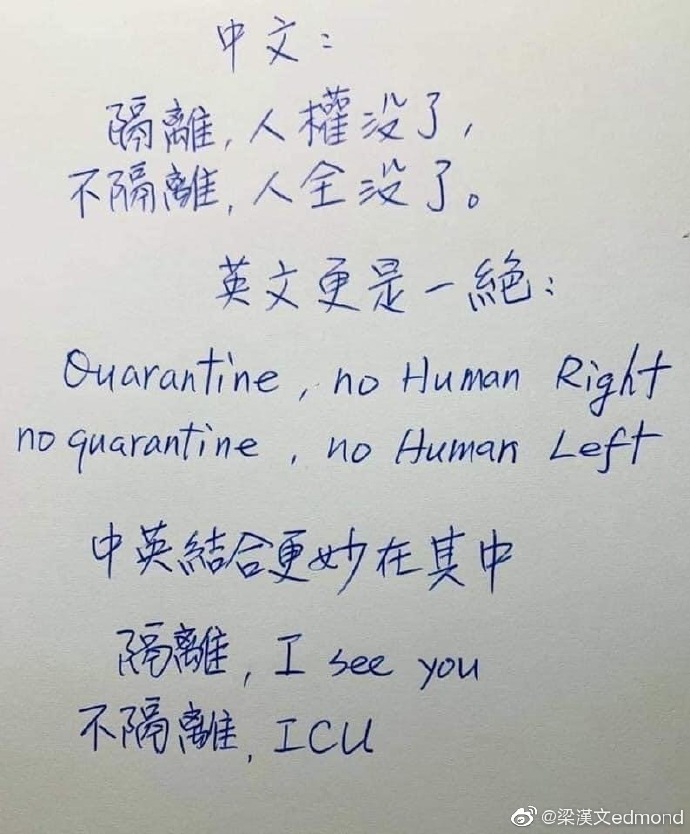 中文：
隔離，人權没了，
不隔離，人全没了。
英文更是一絕：
Quarantine, no Human Right
no quarantine, no Human Left
中英結合更妙在其中
隔離，I see you
不隔離，ICU
@梁漢文edmond